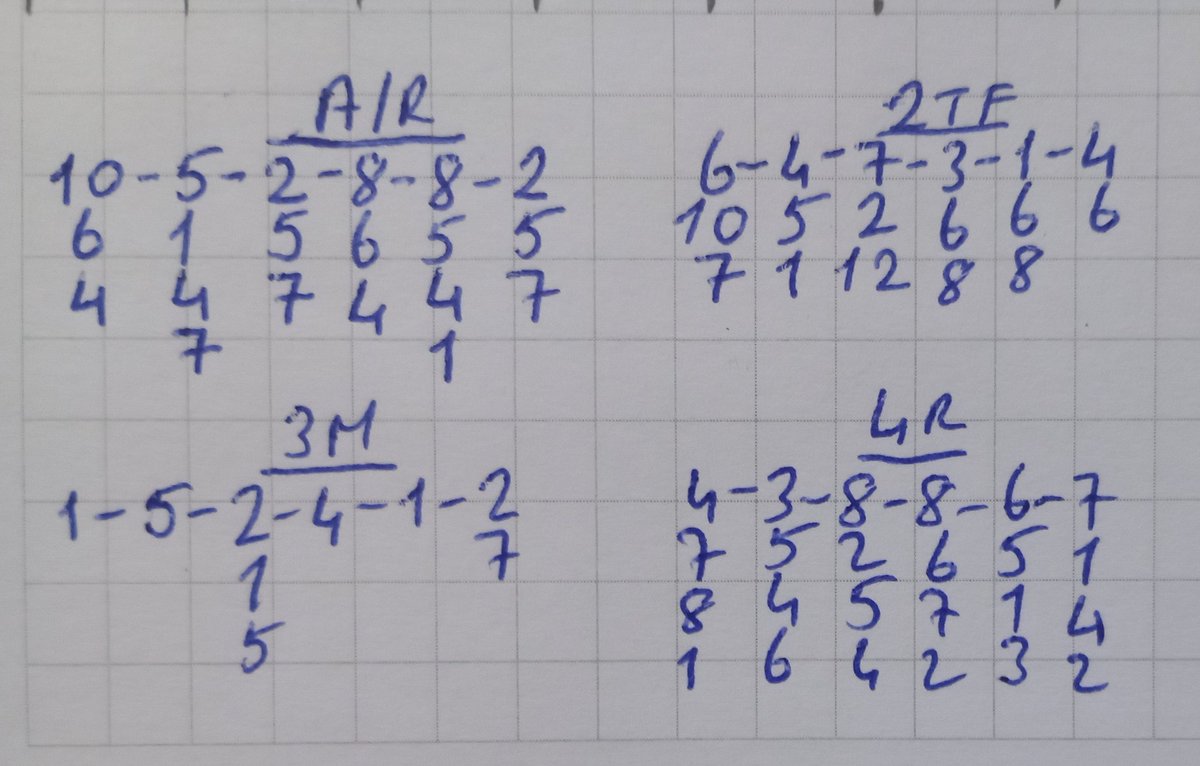 A/R
10-5-2-8-8-2
6 1 5 6 5 5
4 4 7 4 4 7
7 1
2TF
6-4-7-3-1-4
10 5 2 6 6 6
7 1 12 8 8
3M
1-5-2-4-1-2
1 7
5
4R
4-3-8-8-6-7
7 5 2 6 5 1
8 4 5 7 1 4
1 6 4 2 3 2